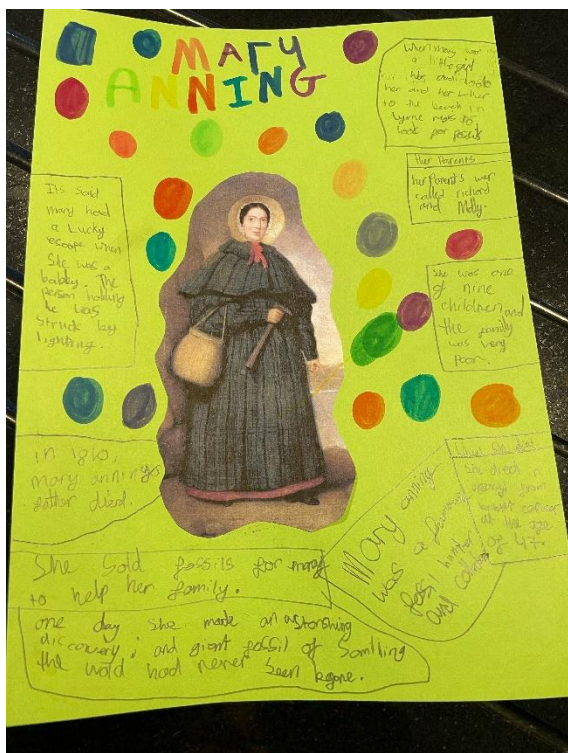 MARY
ANNING
When mary was
a little girl
her and her father
to the beach in
Lyme regis to
look for fossils
Her Parents
her Parents wer
called richard
and Molly.
It's said
mary had
a Lucky
escape when
She was a
babby. The
person holding
he was
Struck by
lighting.
She was one
of nine
children and
the family
was very
Poor.
in 1810,
mary annings
father died.
When She died
She died in
from
breast cancer
at the age
of 47.
Mary anning
was a famous
fossil hunter
and
She Sold fossils for
to help her family.
one day She made an astonshing
discovery; and giant fossil of Somtling
the world had never been before.